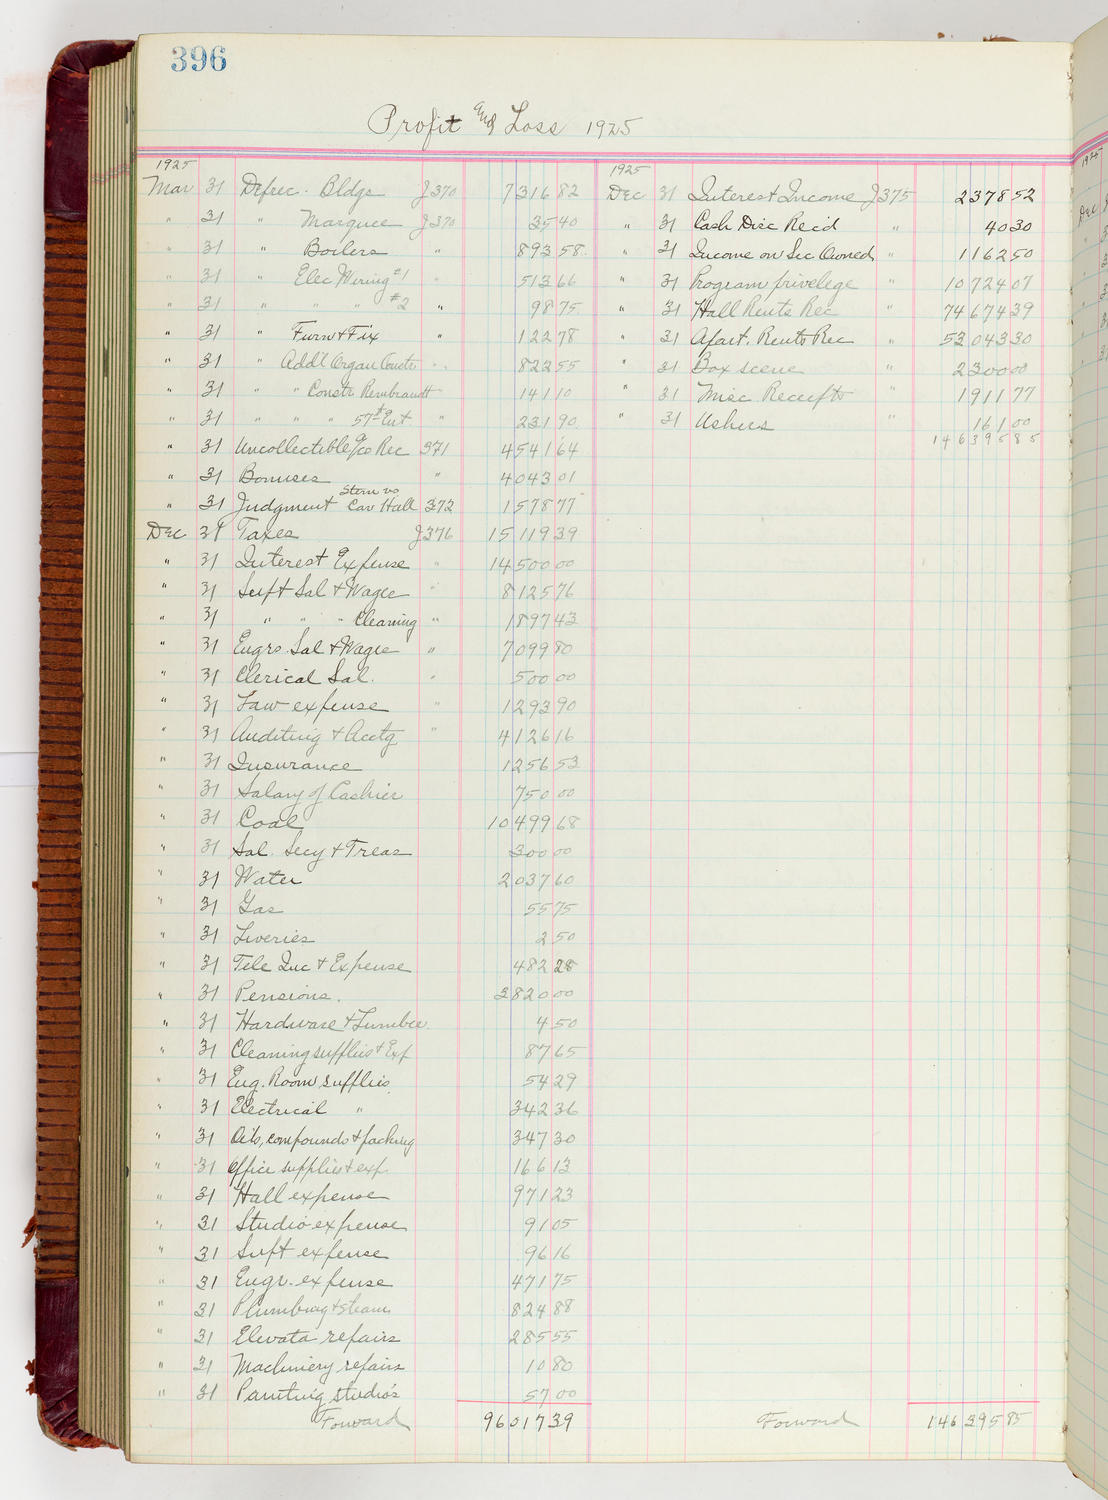 396
Profit and Loss 1925
1925
Mar 31 Deprec. Bldgs J370 7316 82
" 31 " Marquee J370 35 40
" 31 " Boilers " 893 58
" 31 " Elec Wiring #1 " 513 66
" 31 " " " #2 " 98 75
" 31 " Furn & Fix " 122 78
" 31 " Addl Organ Constr " 822 55
" 31 " " Constr Rembrandt 141 10
" 31 " " " 57th Ent " 231 90
" 31 Uncollectible a/cs Rec 371 4541 64
" 31 Bonuses " 4043 01
" 31 Judgment Stern vs Car Hall 372 1578 77
Dec 31 Taxes J376 15119 39
" 31 Interest Expense " 14500 00
" 31 Supt Sal & Wages " 8125 76
" 31 " " " Cleaning " 1897 43
" 31 Engrs. Sal & Wages " 7099 80
" 31 Clerical Sal. " 500 00
" 31 Law expense " 1293 90
" 31 Auditing & Acctg " 4126 16
" 31 Insurance 1256 53
" 31 Salary of Cashier 750 00
" 31 Coal 10499 68
" 31 Sal. Secy & Treas 300 00
" 31 Water 2037 60
" 31 Gas 55 75
" 31 Liveries 2 50
" 31 Tele Inc & Expense 482 28
" 31 Pensions. 3820 00
" 31 Hardware & Lumber 4 50
" 31 Cleaning supplies & Exp 87 65
" 31 Eng. Room supplies 54 29
" 31 Electrical " 342 36
" 31 Oils, compounds & packing 347 30
" 31 Office supplies & exp. 166 13
" 31 Hall expense 971 23
" 31 Studio expense 91 05
" 31 Supt expense 96 16
" 31 Engr. expense 471 75
" 31 Plumbing & steam 824 88
" 31 Elevator repairs 285 55
" 31 Machinery repairs 10 80
" 31 Painting studio's 57 00
Forward 96017 39
1925
Dec 31 Interest Income J375 2378 52
" 31 Cash Disc Rec'd " 40 30
" 31 Income on Sec Owned " 1162 50
" 31 Program privelege " 10724 07
" 31 Hall Rents Rec " 74674 39
" 31 Apart. Rents Rec " 53043 30
" 31 Box scene " 2300 00
" 31 Misc Receipts " 1911 77
" 31 Ushers " 161 00
146395 85
Forward 146395 85
1925
Dec